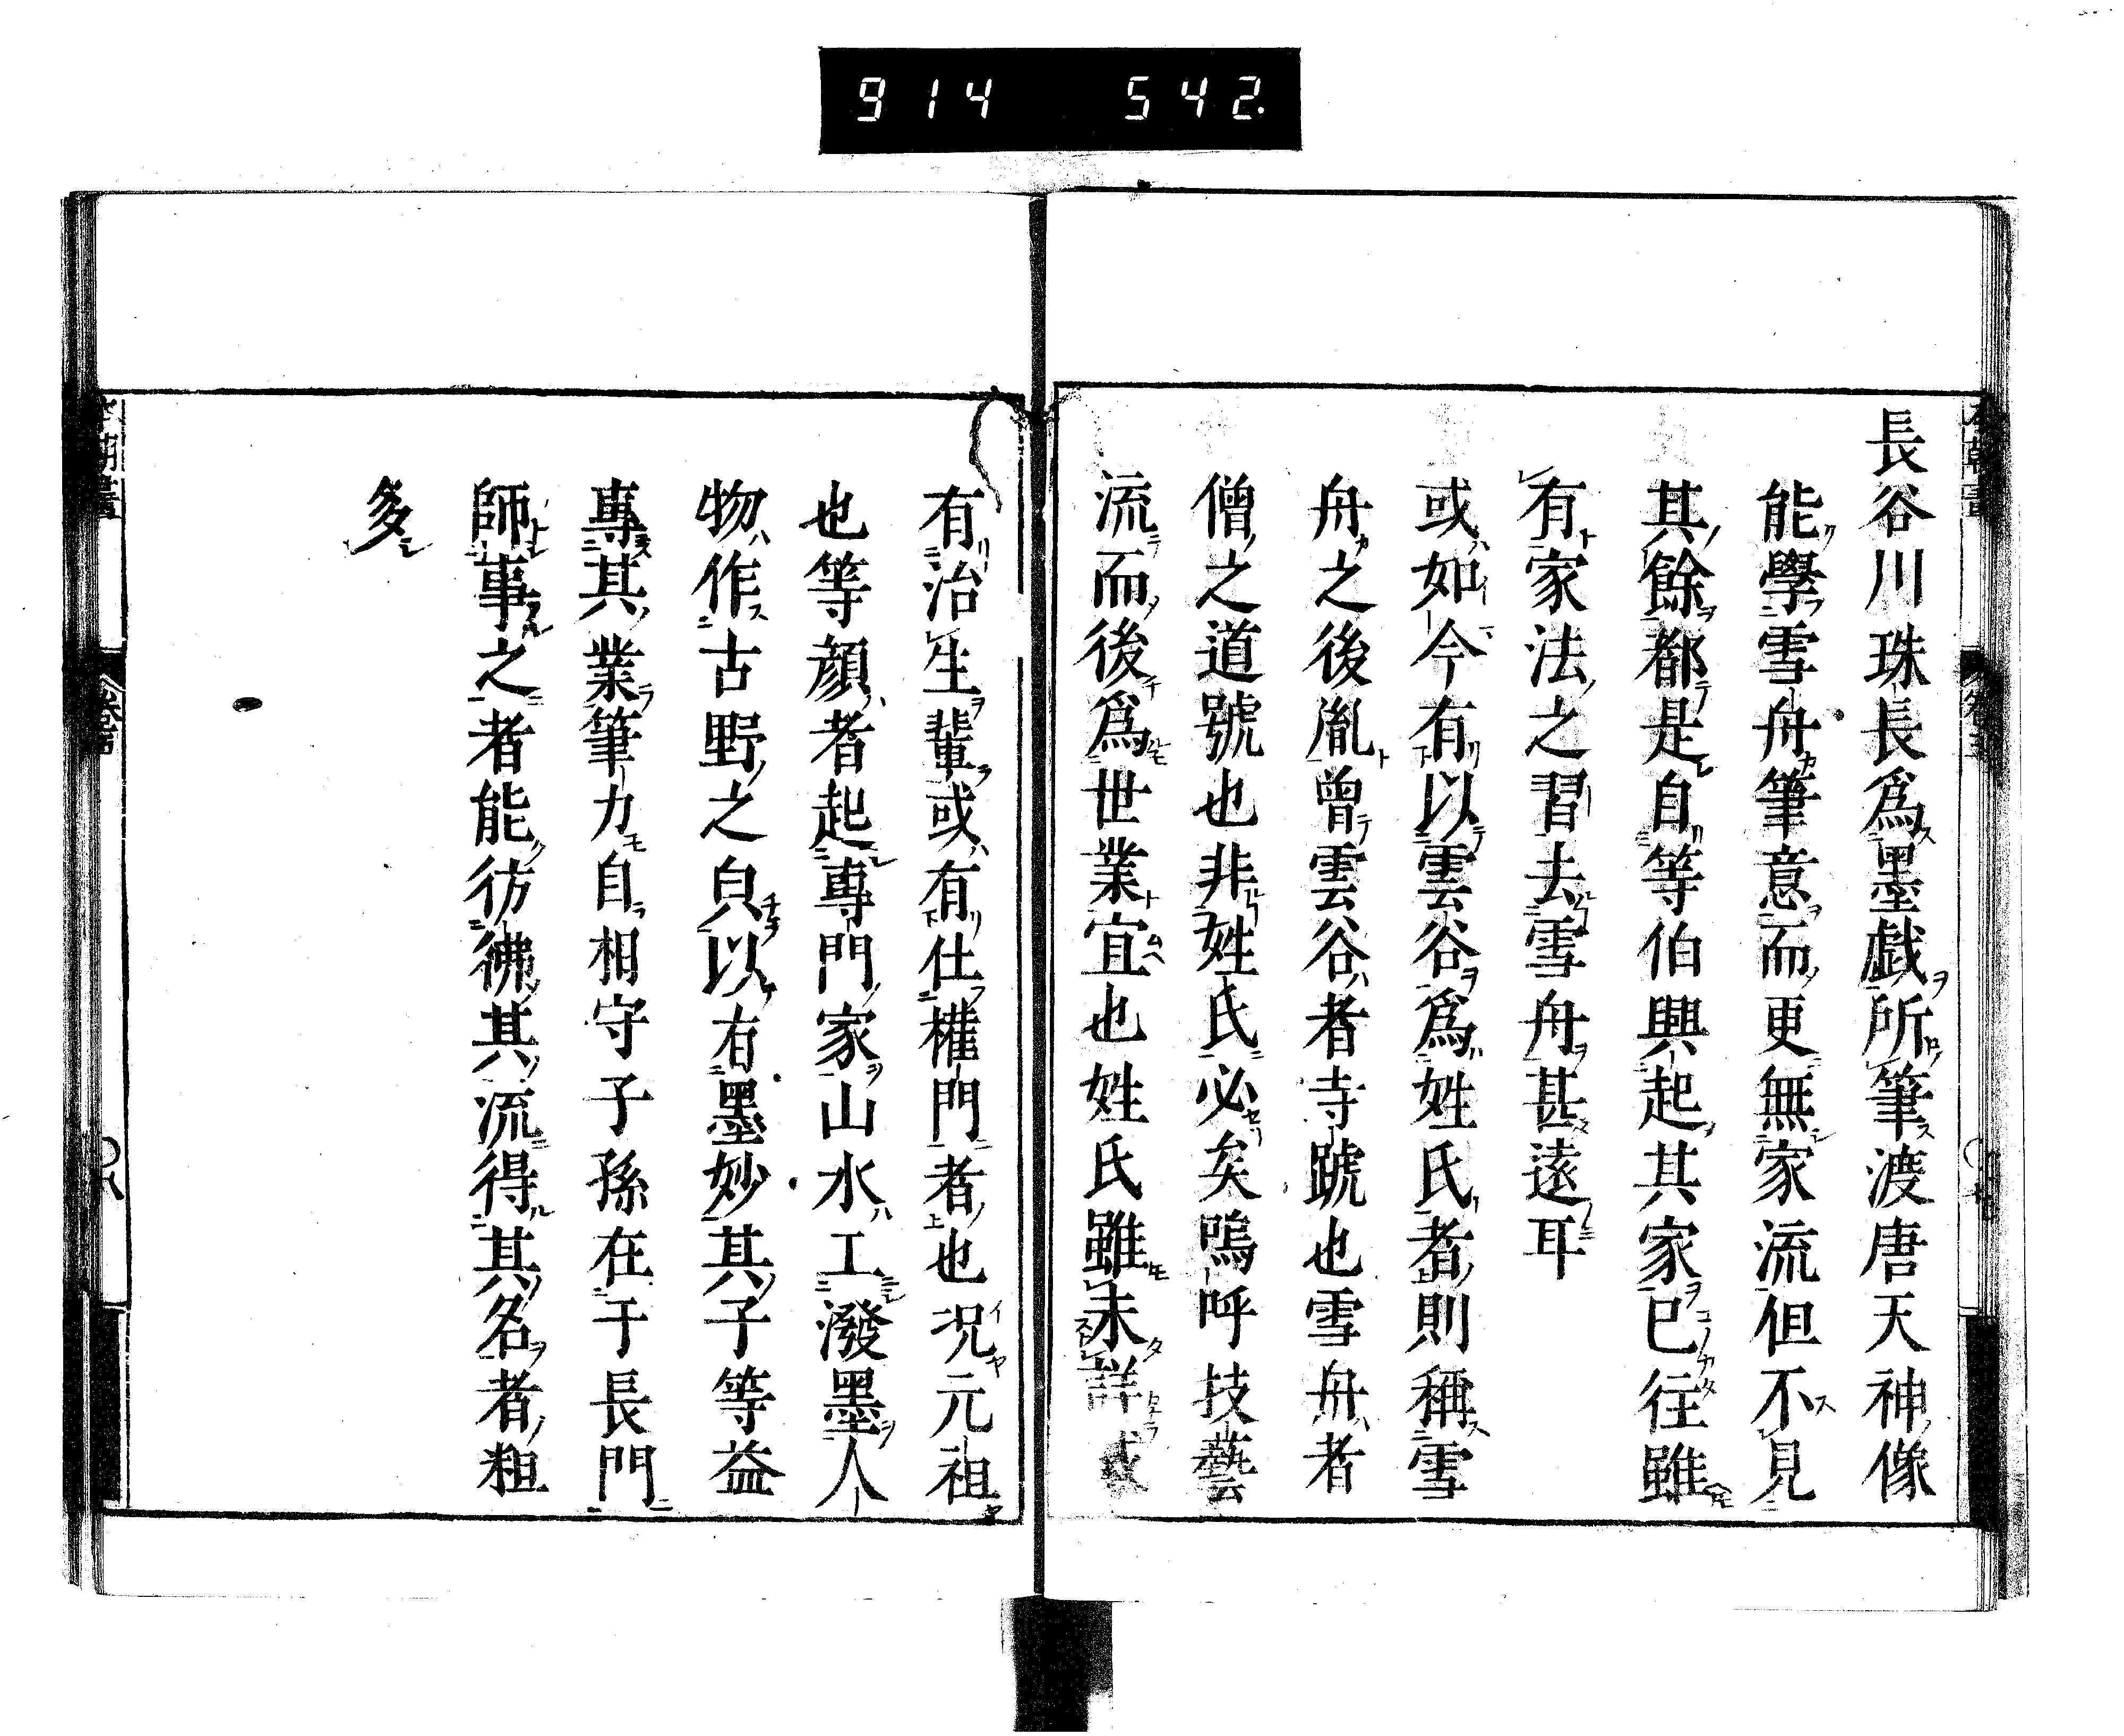 914 542
長谷川珠長爲墨戯所筆渡唐天神像
能學雪舟筆意而更無家流但不見
其餘都是自等伯興起其家已往雖
有家法之習去雪舟甚遠耳
或如今有以雲谷爲姓氏者則稱雪
舟之後胤曾雲谷者寺號也雪舟者
僧之道號也非姓氏必矣嗚呼技藝
流而後爲世業宜也姓氏雖未詳或
有治生輩或有仕權門者也况元祖
也等顔者起專門家山水工潑墨人
物作古野之皃以有墨妙其子等益
專其業筆力自相守子孫在于長門
師事之者能彷彿其流得其名者粗
多